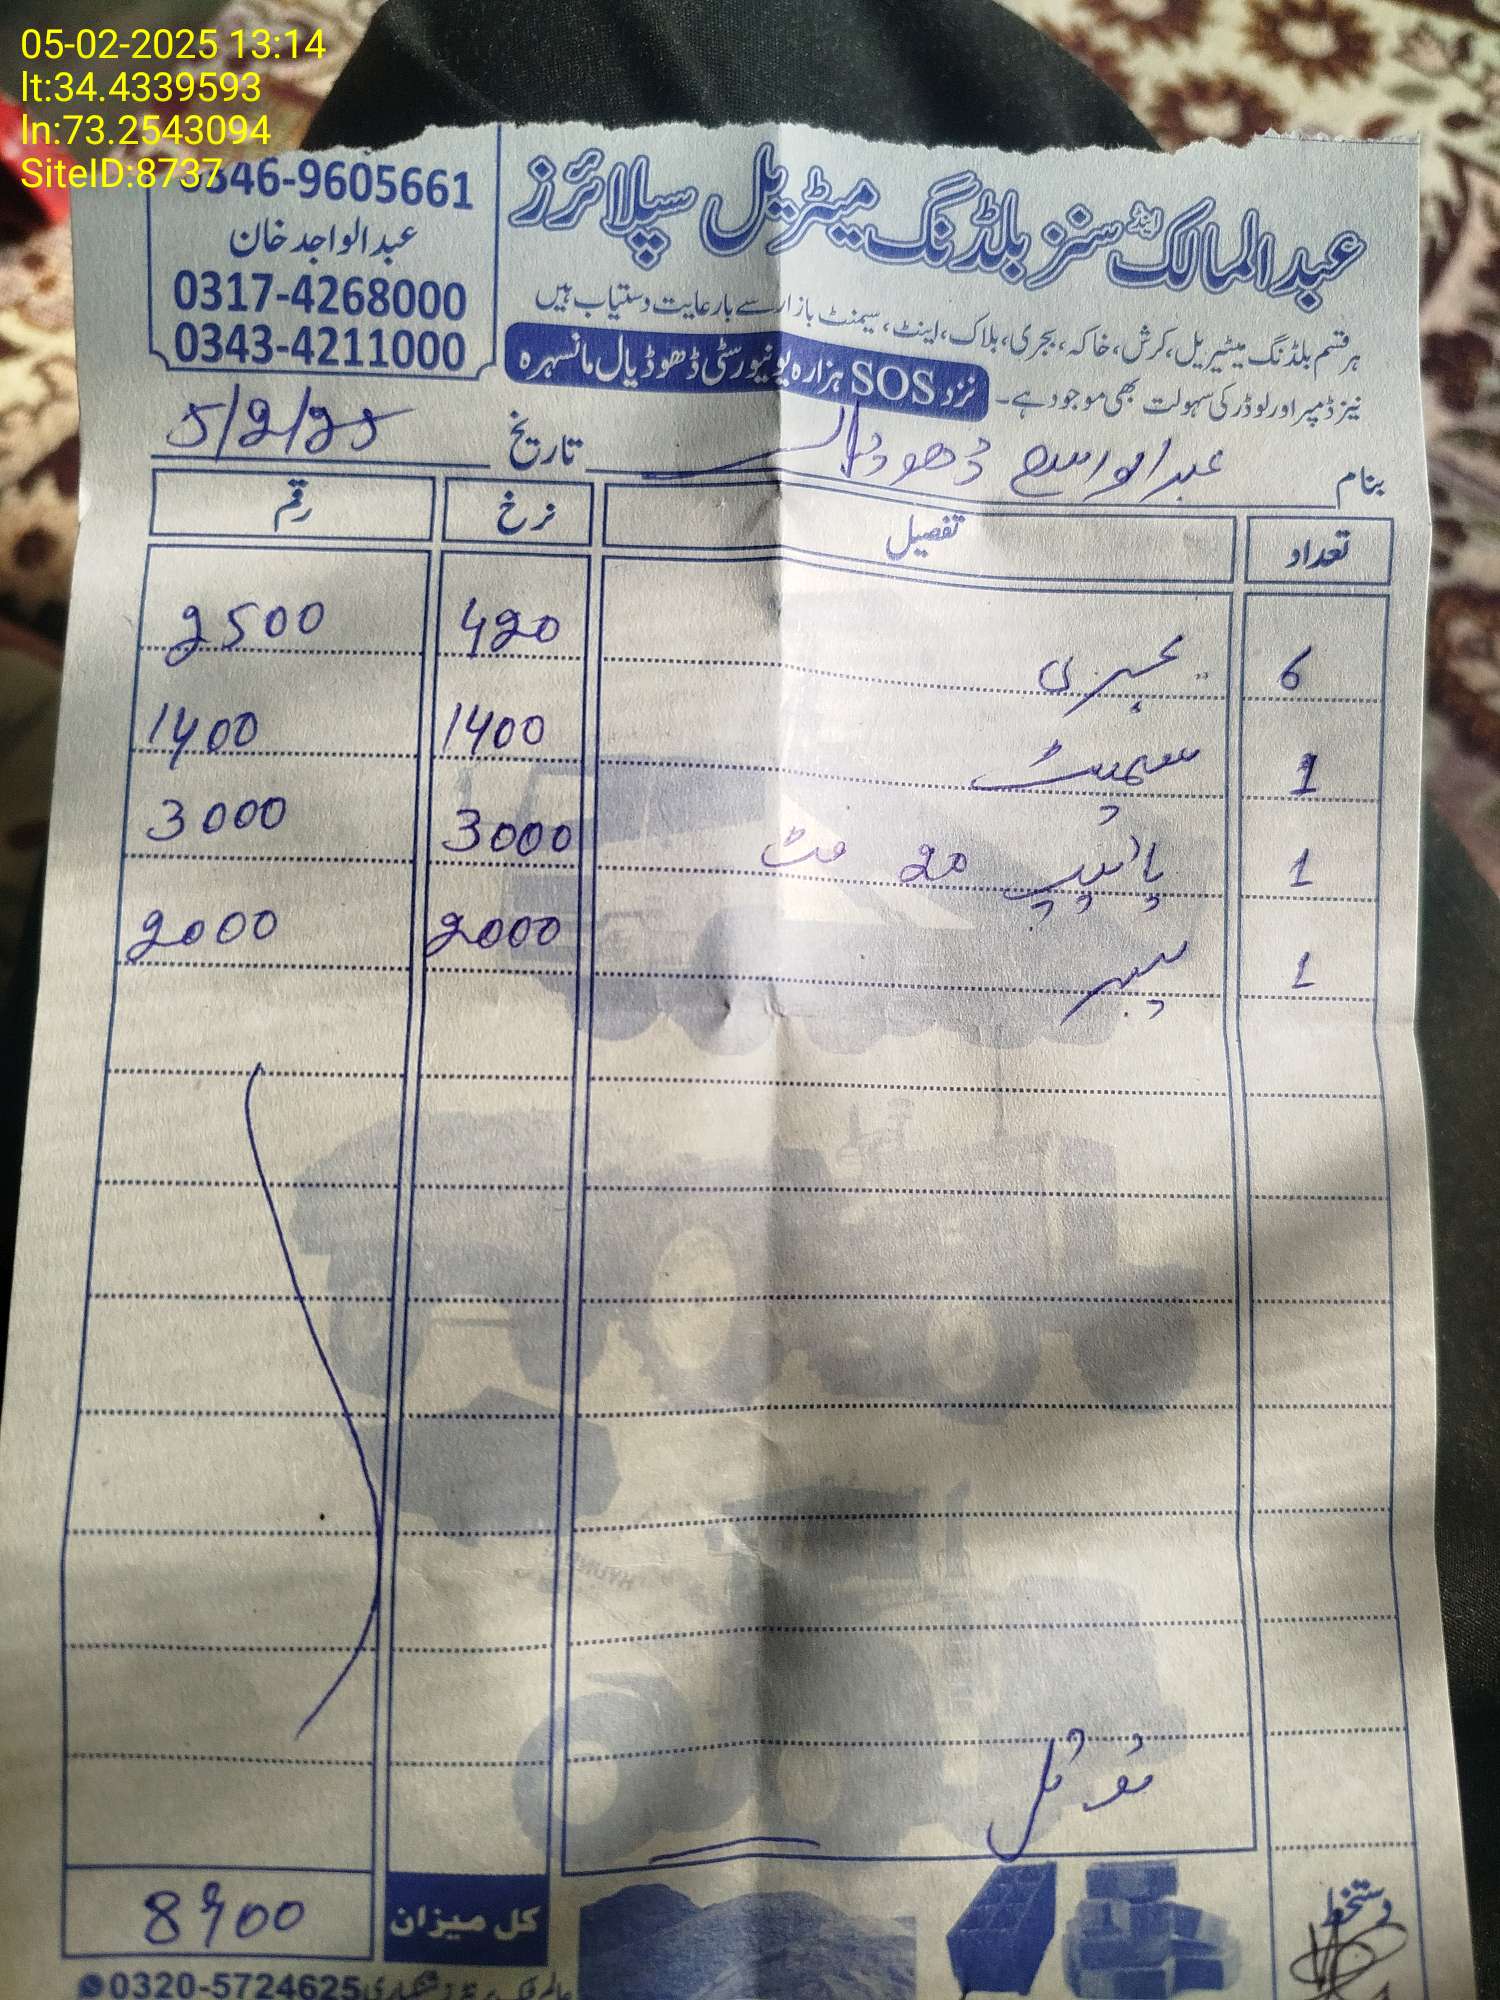 05-02-2025 13:14
lt:34.4339593
ln:73.2543094
SiteID:8737
عبدالمالک اینڈ سنز بلڈنگ میٹریل سپلائرز
46-9605661
عبدالواجد خان
0317-4268000
0343-4211000
ہر قسم بلڈنگ میٹیریل، کرش، خاکہ، بجری، بلاک، اینٹ، سیمنٹ بازار سے بارعایت دستیاب ہیں
نیز ڈمپر اور لوڈر کی سہولت بھی موجود ہے۔
نزد SOS ہزارہ یونیورسٹی ڈھوڈیال مانسہرہ
بنام عبدالواسع تاریخ 5/2/25
تعداد تفصیل نرخ رقم
6 بجری 420 2500
1 سیمنٹ 1400 1400
1 پائیپ 20 فٹ 3000 3000
1 2000 2000
ٹوٹل
کل میزان 8900
دستخط
0320-5724625